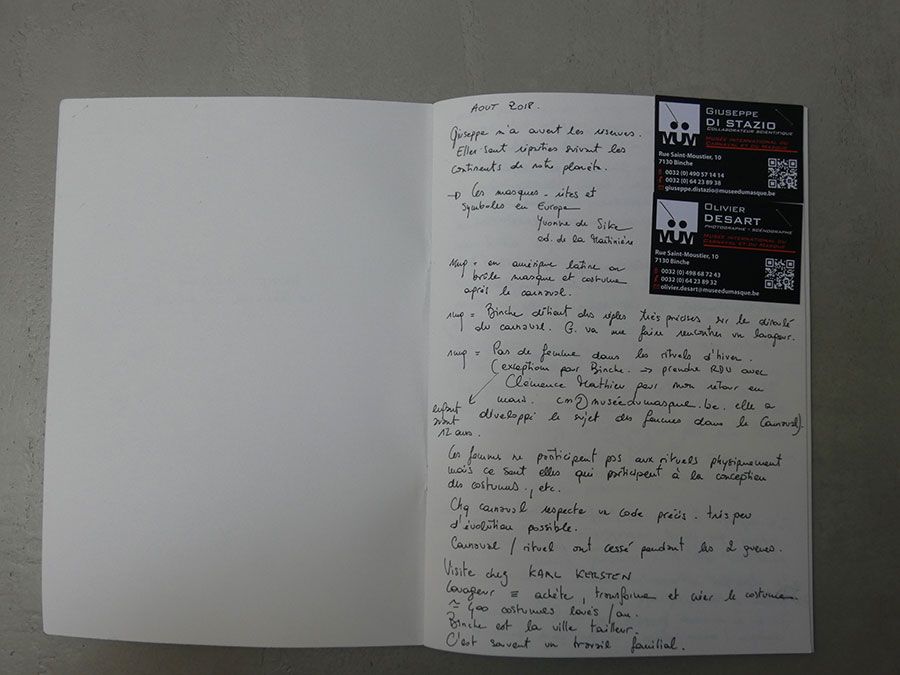 AOUT 2018.
Giuseppe m'a ouvert les réserves.
Elles sont réparties suivant les
continents de notre planète.
→ Les masques - rites et
symboles en Europe
Yvonne de Sike
ed. de la Martinière
rmq = en amérique latine on
brûle masque et costume
après le carnaval.
rmq = Binche détient des règles très précises sur le déroulé
du carnaval. G. va me faire rencontrer un louageur.
rmq = Pas de femme dans les rituels d'hiver.
(exceptions pour Binche. ⇒ prendre RDV avec
Clémence Mathieu pour mon retour en
mars. cm@museedumasque.be. elle a
développé le sujet des femmes dans le Carnaval).
enfant
avant
12 ans.
Les femmes ne participent pas aux rituels physiquement
mais ce sont elles qui participent à la conception
des costumes, etc.
Chq carnaval respecte un code précis. très peu
d'évolution possible.
Carnaval / rituel ont cessé pendant les 2 guerres.
Visite chez KARL KERSTEN
louageur = achète, transforme et créer le costume
≃ 400 costumes loués /an.
Binche est la ville tailleur.
C'est souvent un travail familial.
MUM
GIUSEPPE
DI STAZIO
COLLABORATEUR SCIENTIFIQUE
MUSÉE INTERNATIONAL DU
CARNAVAL ET DU MASQUE
Rue Saint-Moustier, 10
7130 Binche
0032 (0) 490 57 14 14
0032 (0) 64 23 89 38
giuseppe.distazio@museedumasque.be
MUM
OLIVIER
DESART
PHOTOGRAPHE - SCÉNOGRAPHE
MUSÉE INTERNATIONAL DU
CARNAVAL ET DU MASQUE
Rue Saint-Moustier, 10
7130 Binche
0032 (0) 498 68 72 43
0032 (0) 64 23 89 32
olivier.desart@museedumasque.be